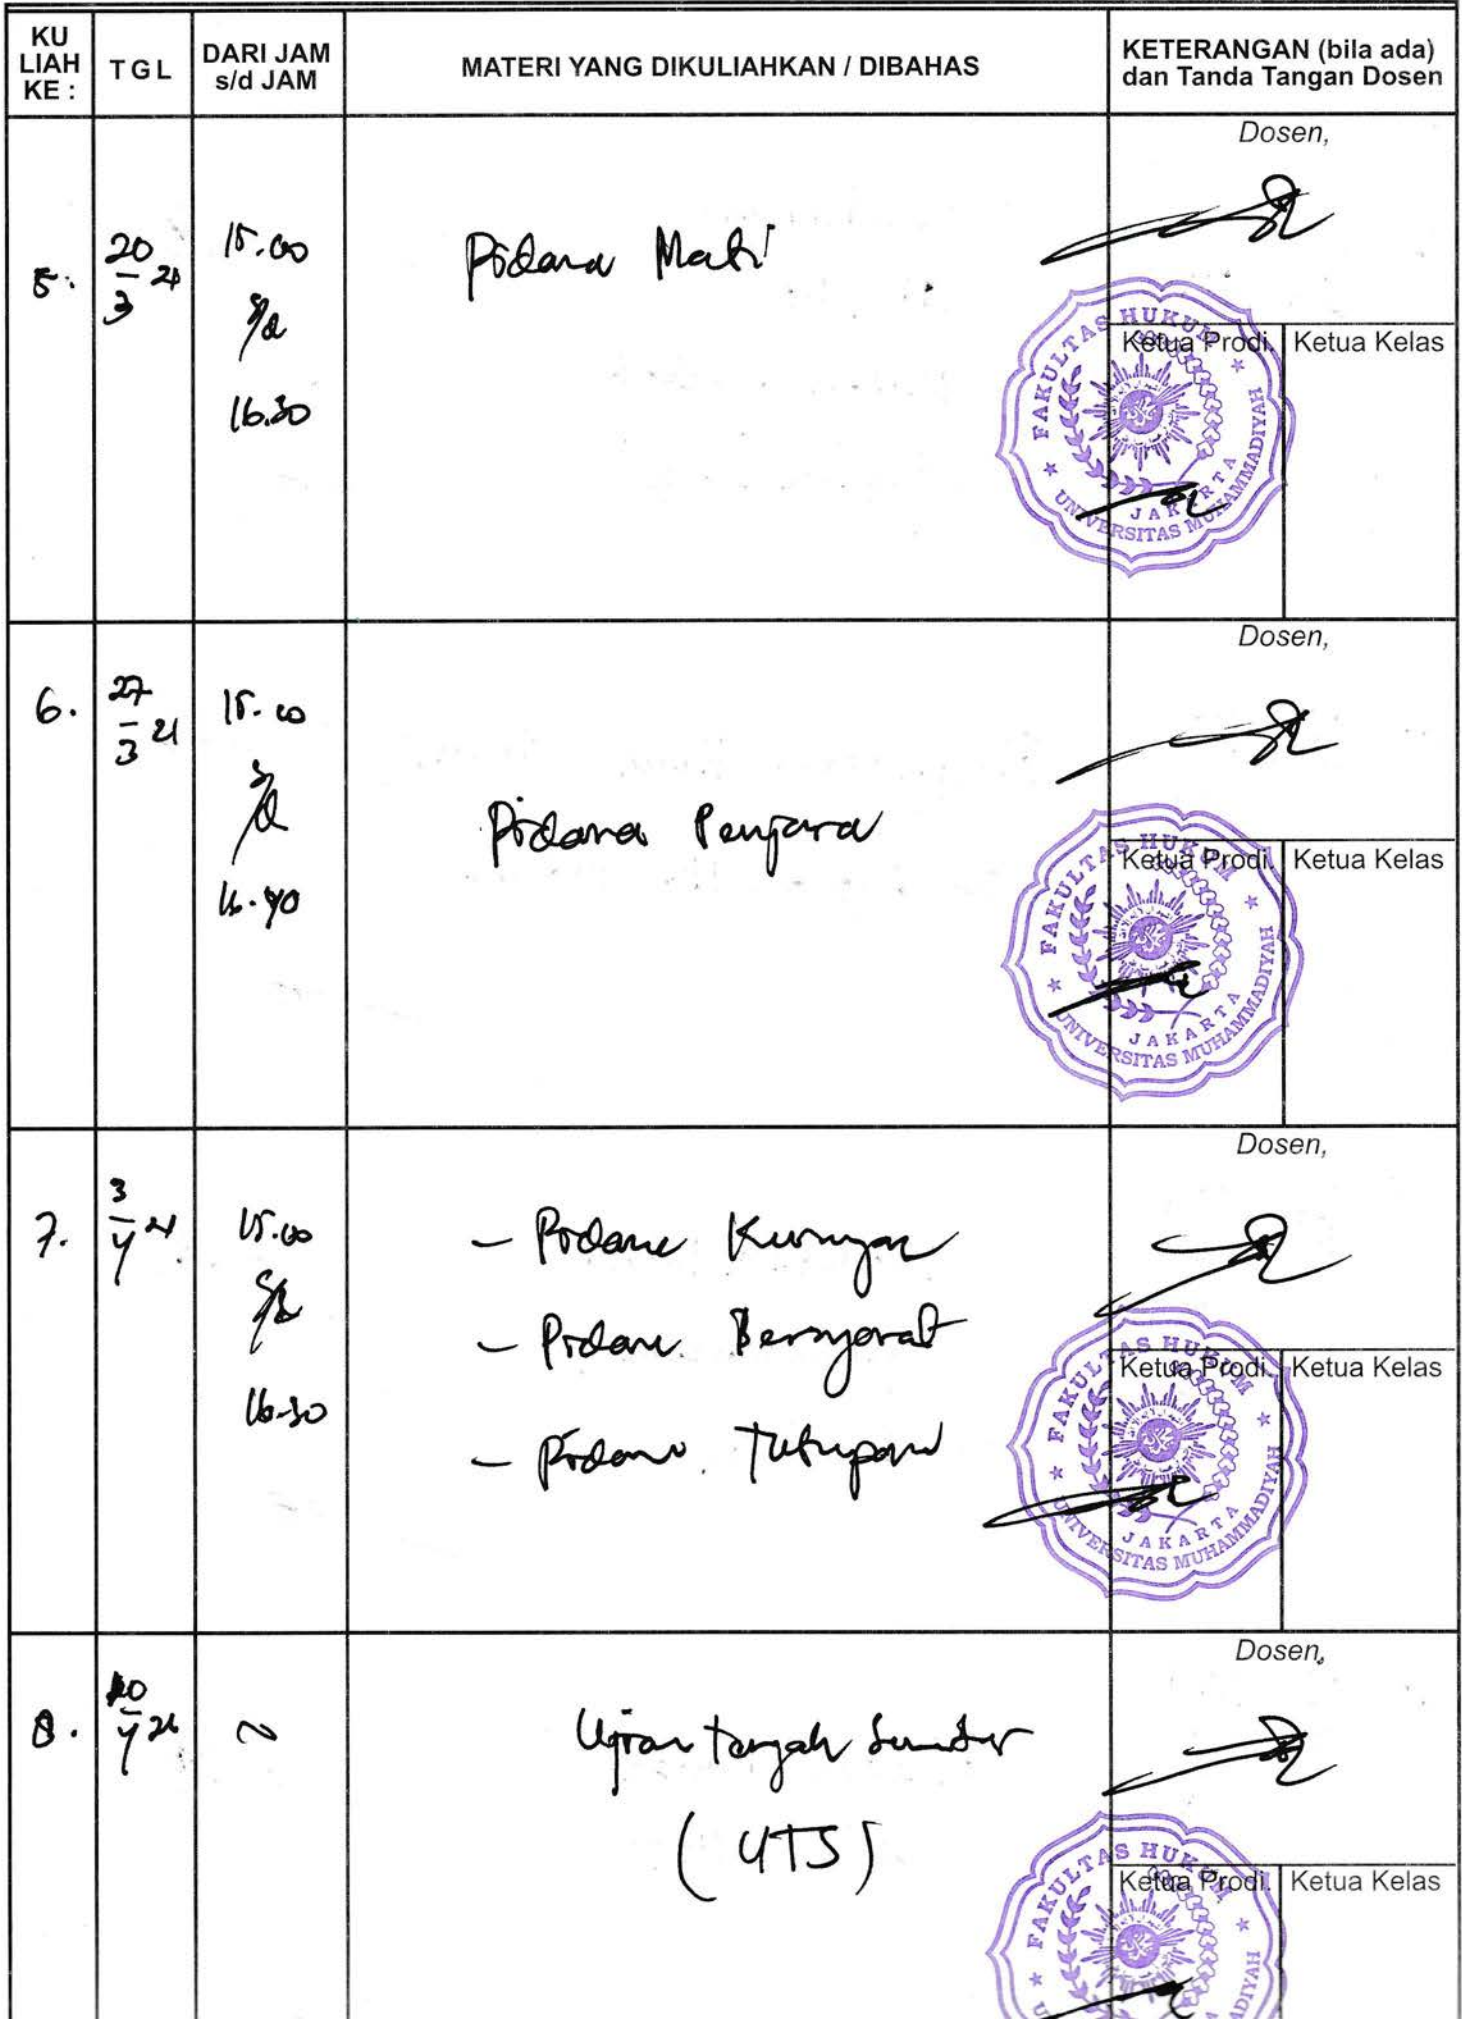 KU LIAH KE : TGL DARI JAM s/d JAM MATERI YANG DIKULIAHKAN / DIBAHAS KETERANGAN (bila ada) dan Tanda Tangan Dosen
Dosen,
5. 20/3 21 15.00 Pidana Mati
s/d
Ketua Prodi. Ketua Kelas
16.30
FAKULTAS HUKUM
UNIVERSITAS MUHAMMADIYAH
JAKARTA
Dosen,
6. 27/3 21 15.00
s/d
Pidana Penjara
Ketua Prodi. Ketua Kelas
16.40
FAKULTAS HUKUM
UNIVERSITAS MUHAMMADIYAH
JAKARTA
Dosen,
7. 3/4 21 15.00 - Pidana Kurungan
s/d - Pidana Bersyarat
Ketua Prodi. Ketua Kelas
16.30 - Pidana Tutupan
FAKULTAS HUKUM
UNIVERSITAS MUHAMMADIYAH
JAKARTA
Dosen,
8. 10/4 21 ~ Ujian tengah Semester
(UTS)
Ketua Prodi. Ketua Kelas
FAKULTAS HUKUM